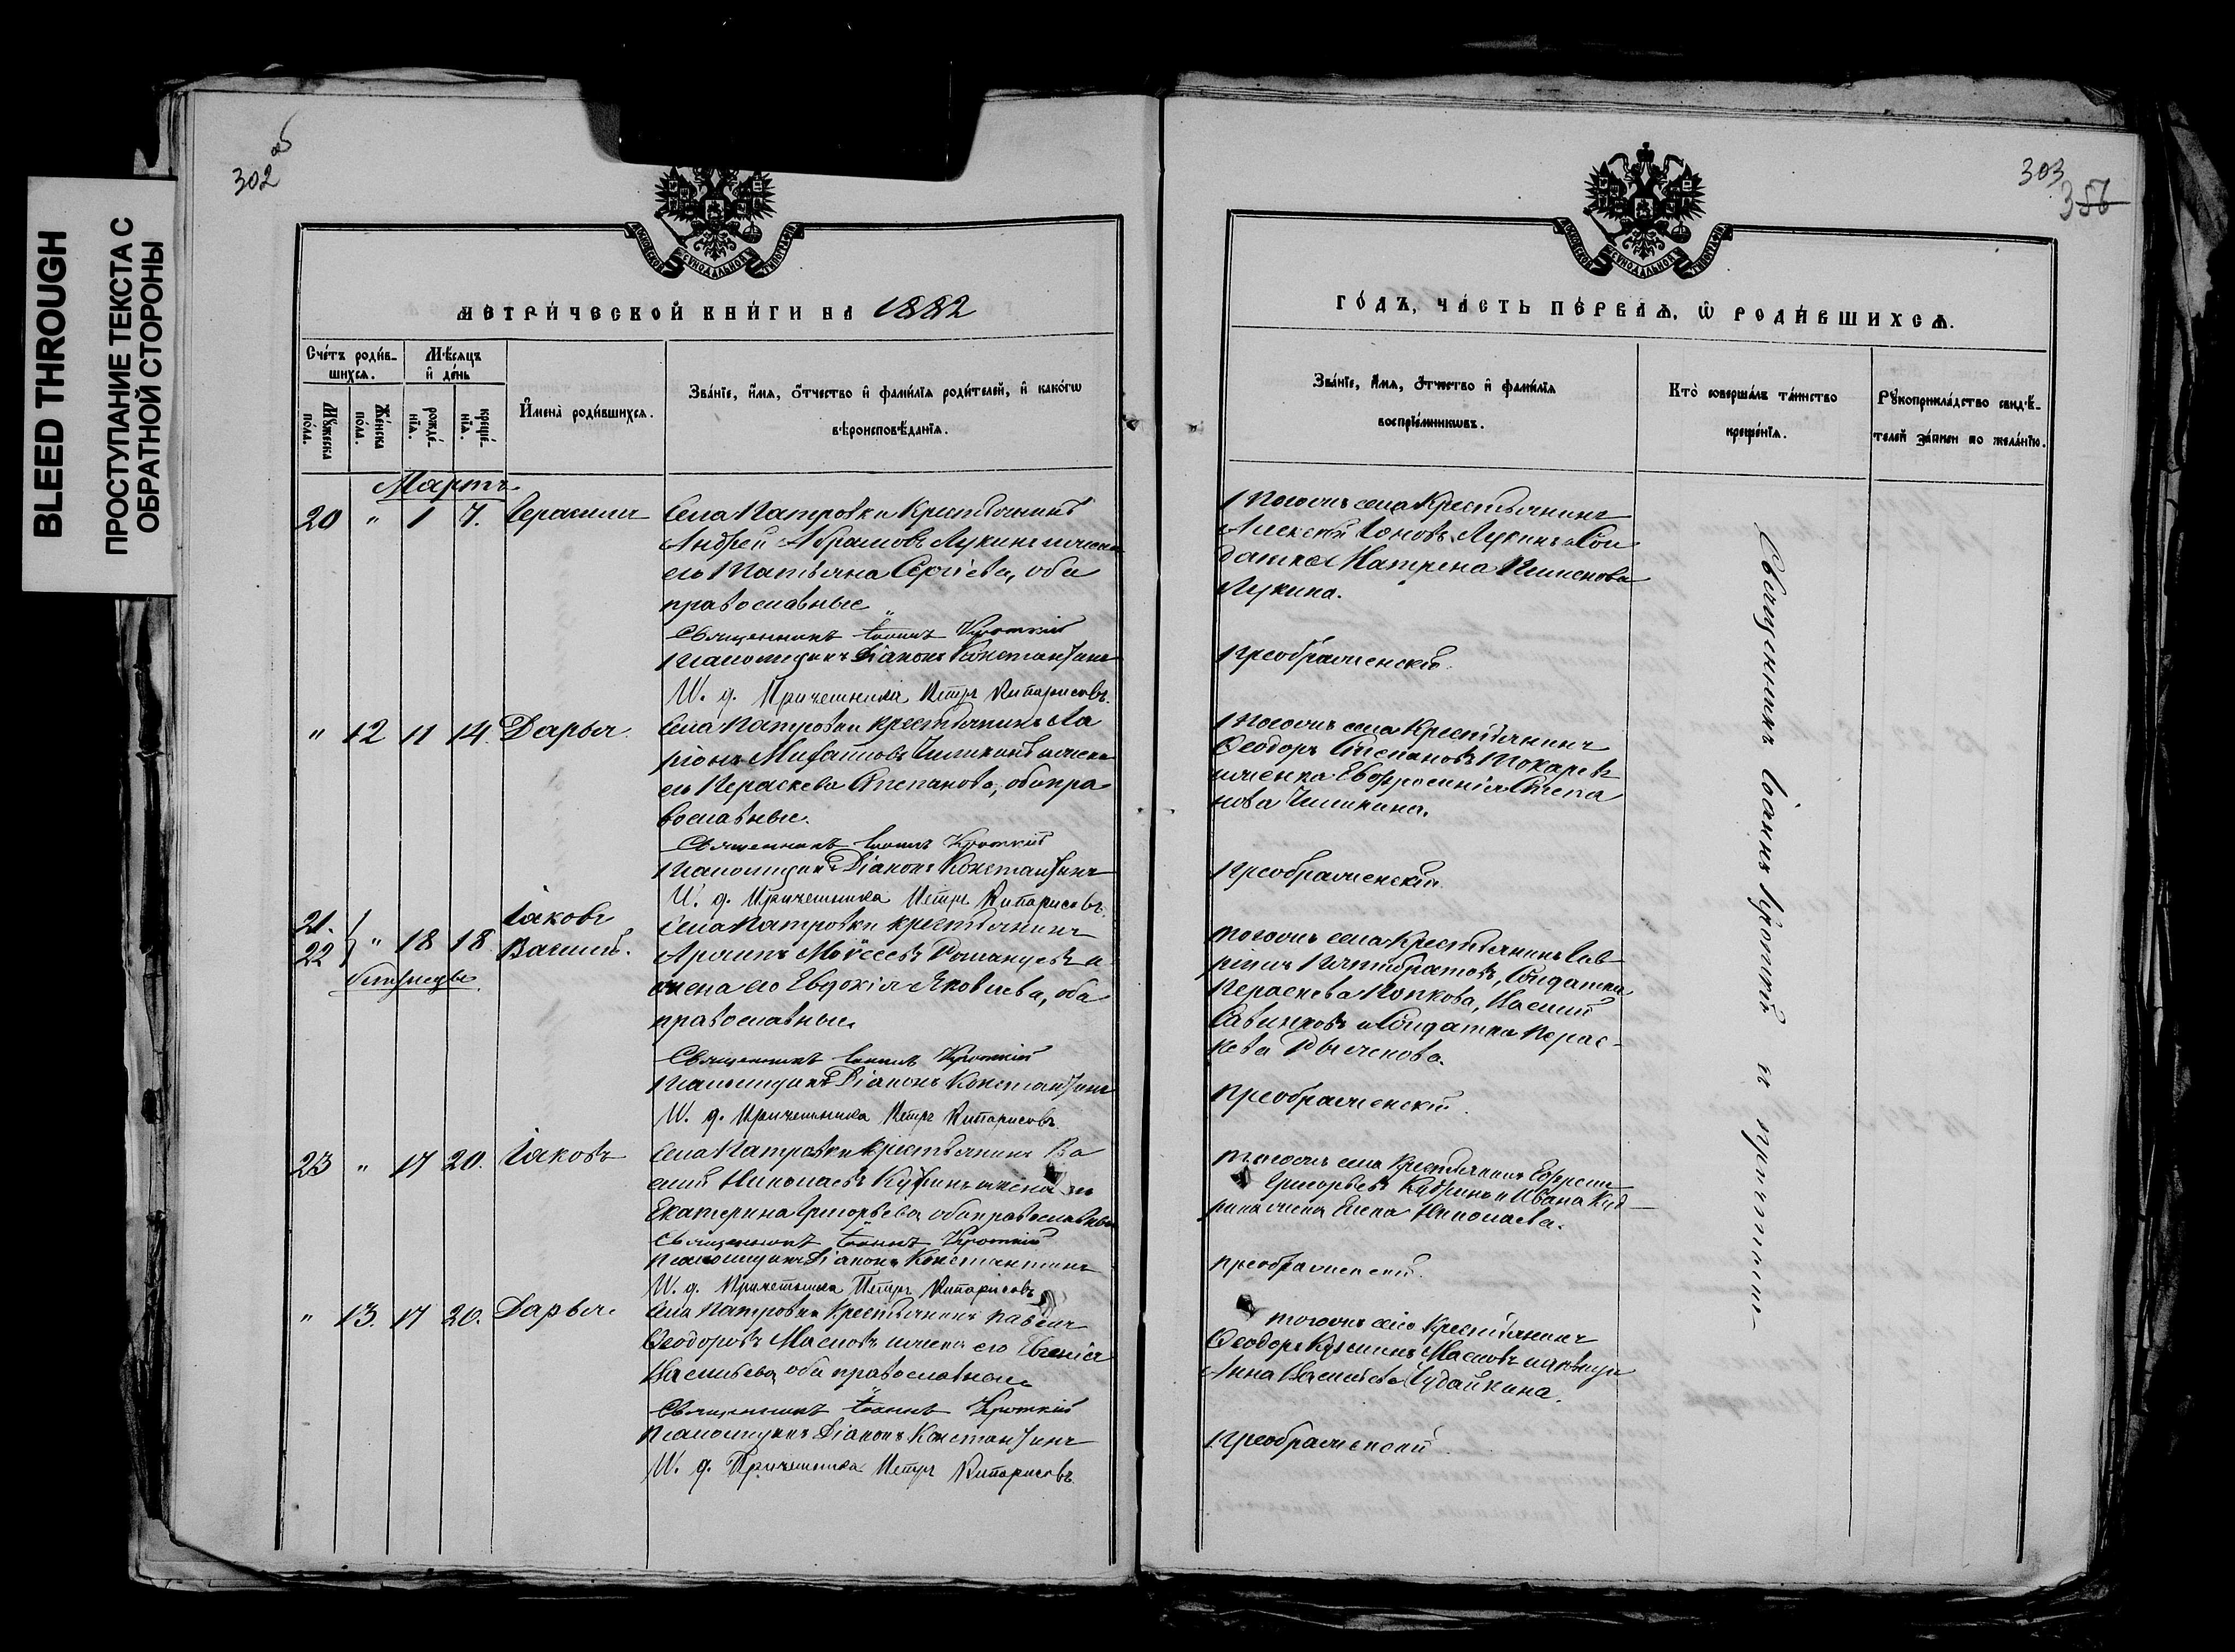 BLEED THROUGH
ПРОСТУПАНИЕ ТЕКСТА С
ОБРАТНОЙ СТОРОНЫ
302 об
МЕТРИ́ЧЕСКОЙ КНИ́ГИ НА 1882
Сче́тъ роди́в-
шихсѧ.
Мѣ́сѧцъ
и҆ де́нь
Мꙋ́жеска
по́ла.
Же́нска
по́ла.
рожде́-
нїѧ.
креще́-
нїѧ.
И҆мена̀ роди́вшихсѧ.
Зва́нїе, и҆́мѧ, ѻ҆́тчество и҆ фами́лїѧ роди́телей, и҆ како́гѡ
вѣроисповѣ́данїѧ.
Мартъ
20 " 1 7. Герасимъ
Села Патровки Крестьянинъ
Андрей Абрамовъ Лукинъ и жена
его Татьяна Сергіева, оба
православные
Священникъ Іоаннъ Кроткій
Псаломщикъ Діаконъ Константинъ
И. д. Причетника Петръ Кипарисовъ.
" 12 11 14. Дарья.
Села Патровки крестьянинъ Ла
ріонъ Михайловъ и жена
его Параскева Степанова, оба пра
вославные.
Священникъ Іоаннъ Кроткій
Псаломщикъ Діаконъ Константинъ
И. д. Причетника Петръ Кипарисовъ.
21.
22 " 18 18
Іаковъ
Василій.
близнецы
Села Патровки крестьянинъ
Моѵсеевъ и
жена его Евдокія Яковлева, оба
православные.
Священникъ Іоаннъ Кроткій
Псаломщикъ Діаконъ Константинъ
И. д. Причетника Петръ Кипарисовъ.
23 " 17 20. Іаковъ
Села Патровки крестьянинъ Ва
силій Николаевъ и жена его
Екатерина Григорьева, оба православные
Священникъ Іоаннъ Кроткій
Псаломщикъ Діаконъ Константинъ
И. д. Причетника Петръ Кипарисовъ
" 13. 17 20. Дарья.
Села Патровки Крестьянинъ Павелъ
Ѳеодоровъ Масловъ и жена его Евгенія
Васильева, оба православные
Священникъ Іоаннъ Кроткій
Псаломщикъ Діаконъ Константинъ
И. д. Причетника Петръ Кипарисовъ.
303
356
ГО́ДЪ, ЧА́СТЬ ПЕ́РВАѦ, Ѡ҆ РОДИ́ВШИХСѦ.
Зва́нїе, и҆́мѧ, ѻ҆́тчество и҆ фами́лїѧ
воспрїе́мникѡвъ.
Кто̀ соверша́лъ та́инство
креще́нїѧ.
Рꙋкоприкла́дство свидѣ́-
телей за́писи по жела́нїю.
Тогожъ села Крестьянинъ
Алексѣй Іоновъ Лукинъ и Сол
датка Матрена Пименова
Лукина.
Преображенскій.
Тогожъ села Крестьянинъ
Ѳеодоръ Степановъ Токаревъ
и женка Евфросинія Степа
нова
Преображенскій.
Тогожъ села Крестьянинъ
Солдатка
Параскева Попкова, Василій
Савинковъ и Солдатка Парас-
кева
Преображенскій.
Тогожъ села Крестьянинъ Ефремъ
Григорьевъ Кудринъ и Ивана Куд-
рина жена Елена Николаева.
Преображенскій.
Тогожъ села Крестьянинъ
Ѳеодоръ Масловъ и
Анна Васильева Чудайкина.
Преображенскій
Священникъ Іоаннъ Кроткій съ причтомъ